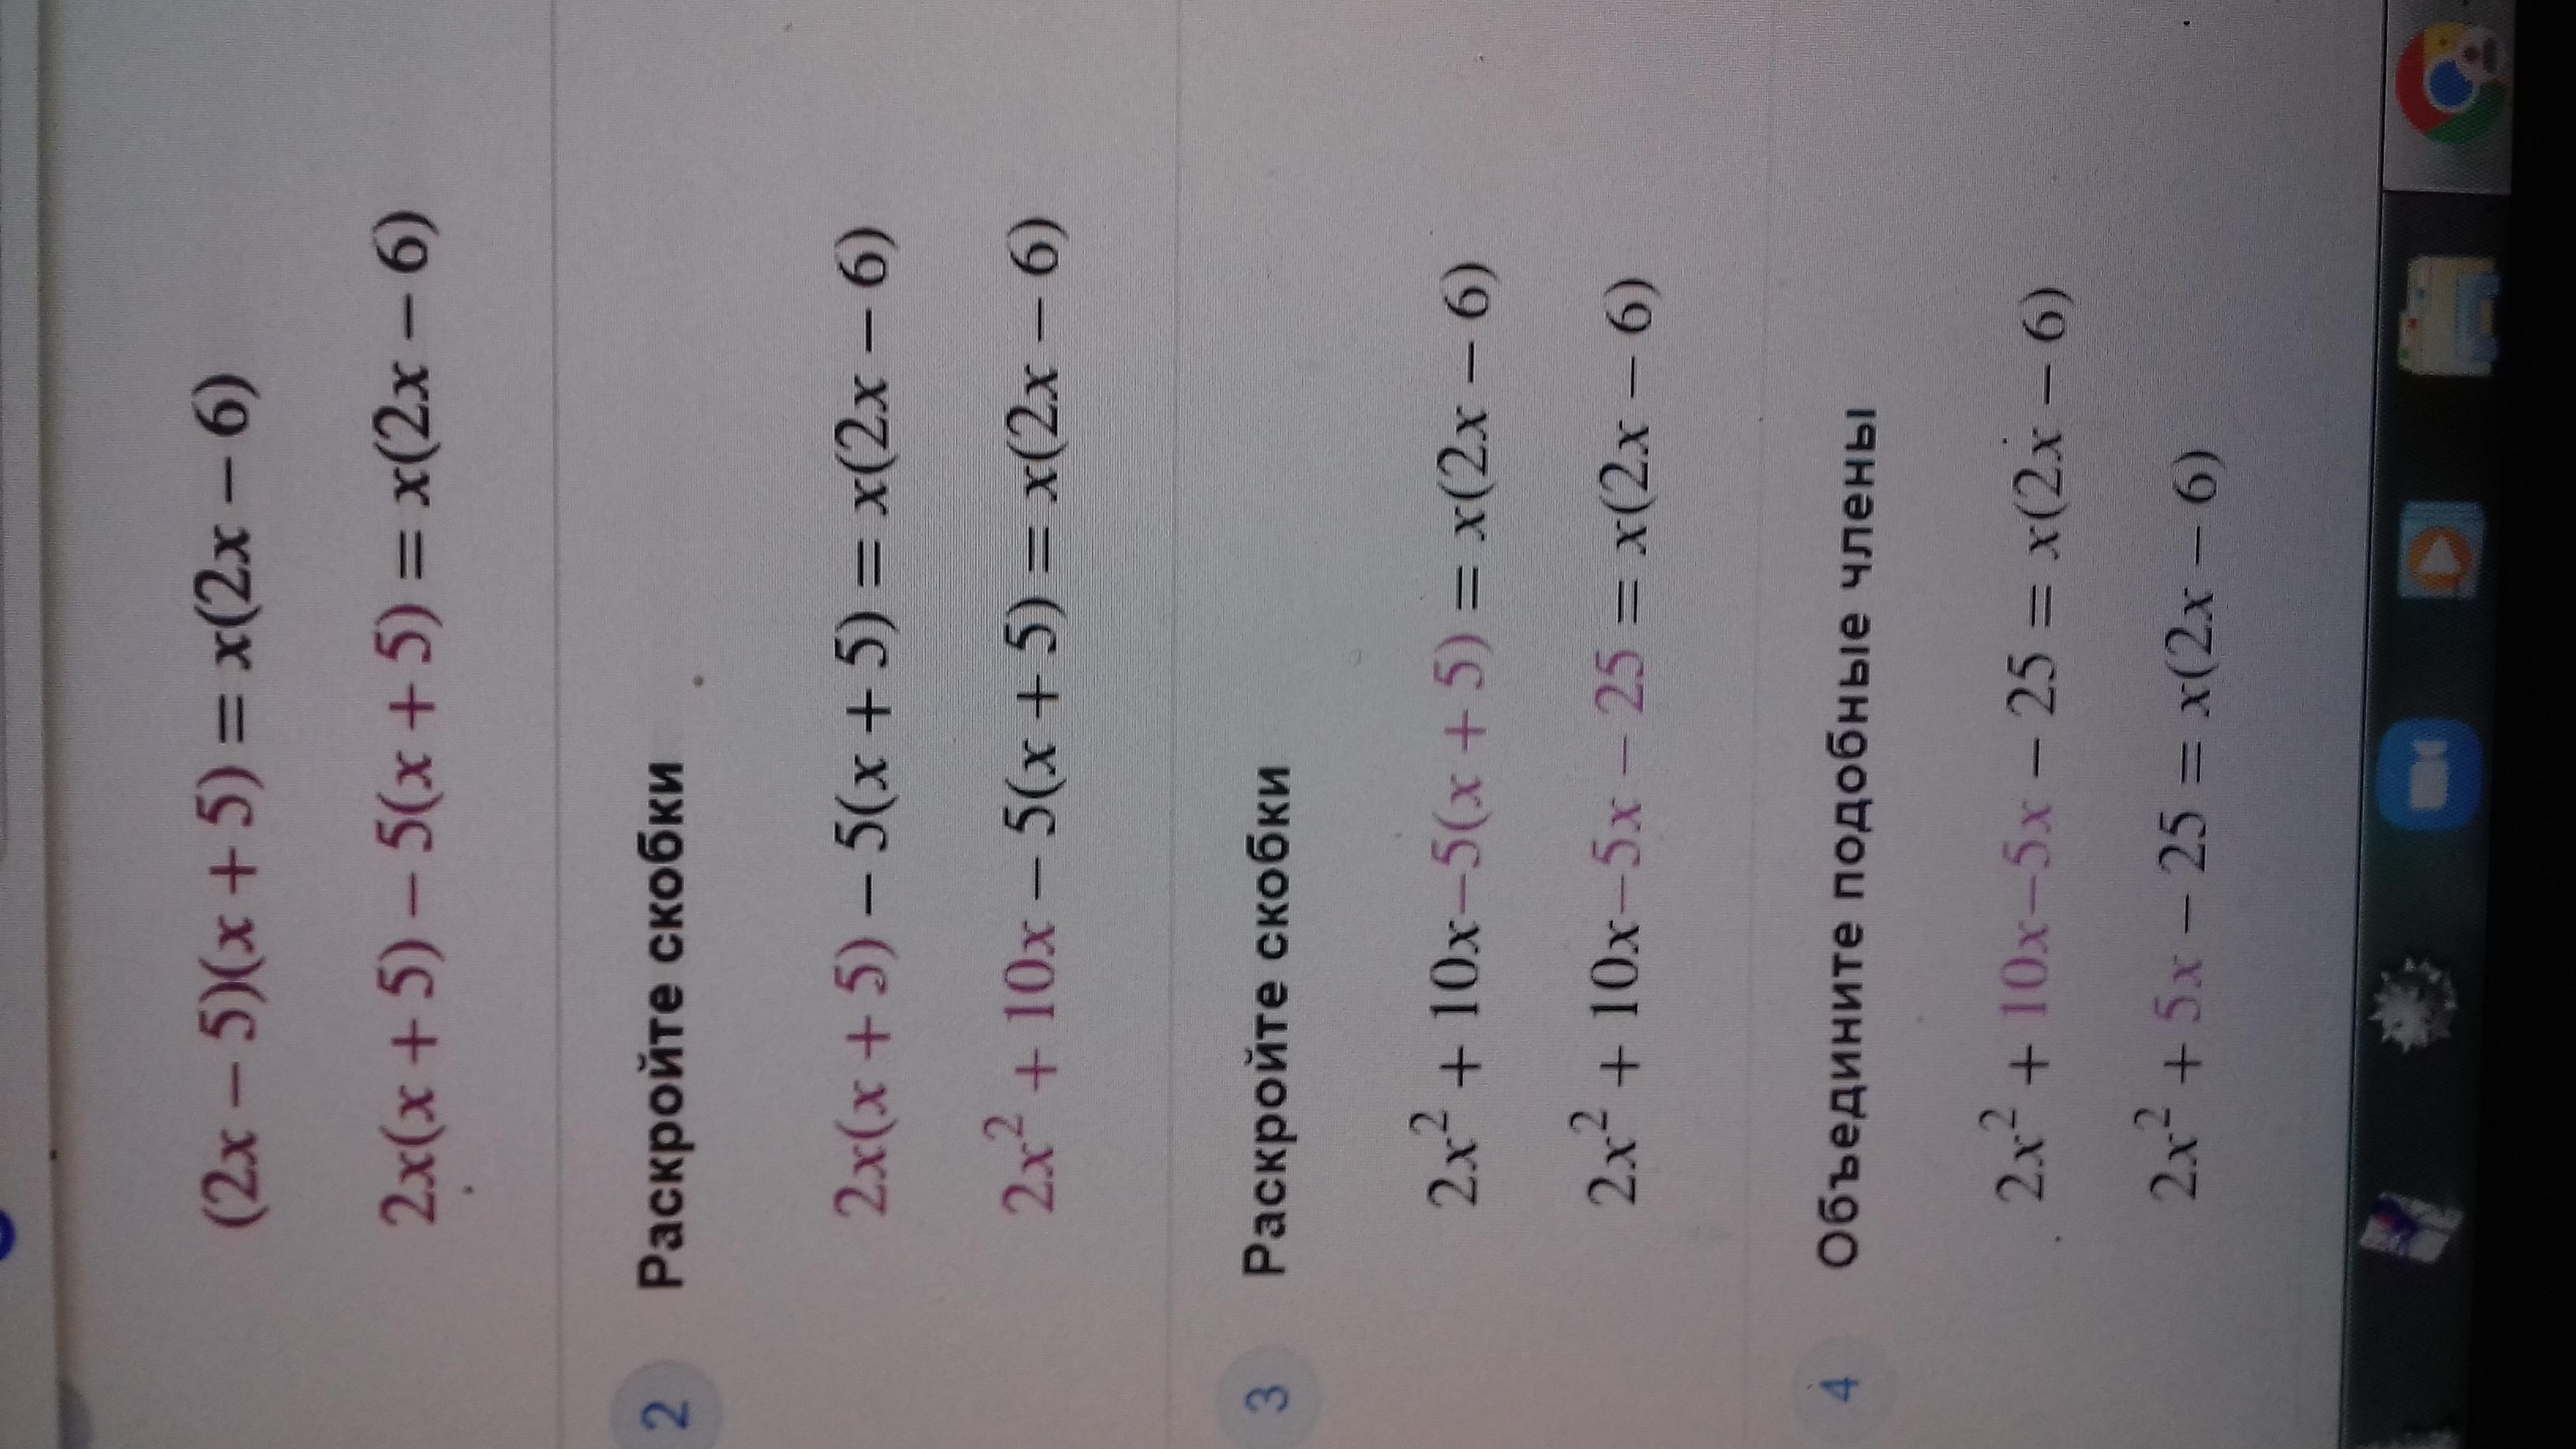 (2x − 5)(x + 5) = x(2x − 6)
2x(x + 5) − 5(x + 5) = x(2x − 6)
2 Раскройте скобки
2x(x + 5) − 5(x + 5) = x(2x − 6)
2x² + 10x − 5(x + 5) = x(2x − 6)
3 Раскройте скобки
2x² + 10x−5(x + 5) = x(2x − 6)
2x² + 10x−5x − 25 = x(2x − 6)
4 Объедините подобные члены
2x² + 10x−5x − 25 = x(2x − 6)
2x² + 5x − 25 = x(2x − 6)